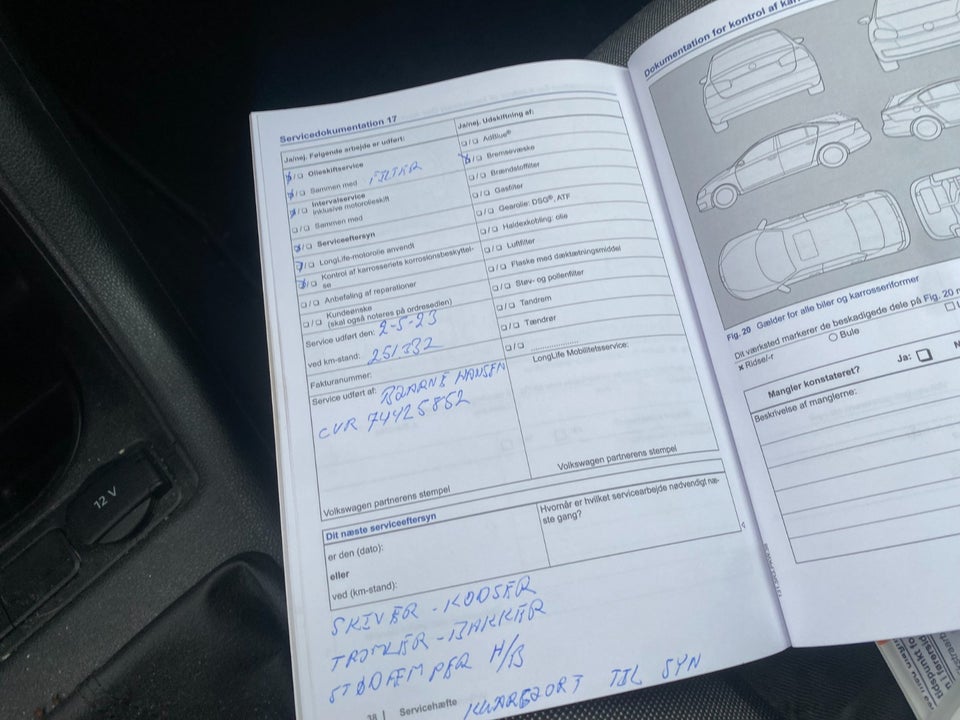 Servicedokumentation 17
Ja/nej. Følgende arbejde er udført:
Olieskiftservice
Sammen med FILTER
Intervalservice
inklusive motorolieskift
Sammen med
Serviceeftersyn
LongLife-motorolie anvendt
Kontrol af karrosseriets korrosionsbeskyttel-
se
Anbefaling af reparationer
Kundeønske
(skal også noteres på ordresedlen)
Service udført den: 2-5-23
ved km-stand: 251332
Fakturanummer:
Service udført af: BJARNE HANSEN
CVR 74425852
Volkswagen partnerens stempel
Ja/nej. Udskiftning af:
AdBlue®
Bremsevæske
Brændstoffilter
Gasfilter
Gearolie: DSG®, ATF
Haldexkobling: olie
Luftfilter
Flaske med dæktætningsmiddel
Støv- og pollenfilter
Tandrem
Tændrør
LongLife Mobilitetsservice:
Volkswagen partnerens stempel
Dit næste serviceeftersyn
er den (dato):
eller
ved (km-stand):
Hvornår er hvilket servicearbejde nødvendigt næ-
ste gang?
SKIVER - KODSER
TROMLER - BAKKER
STØDEMPER H/B
KLARGJORT TIL SYN
38 | Servicehæfte
Dokumentation for kontrol af
Fig. 20 Gælder for alle biler og karrosseriformer
Dit værksted markerer de beskadigede dele på Fig. 20
x Ridse/-r
Bule
Mangler konstateret?
Ja:
Beskrivelse af manglerne:
12 V